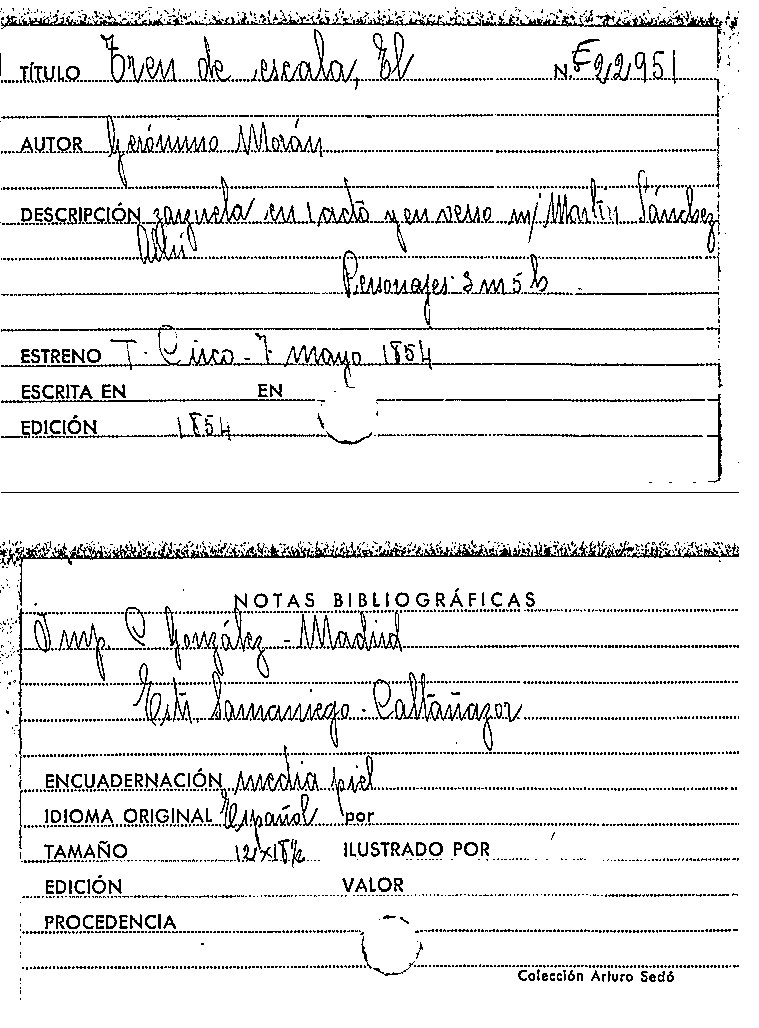 TÍTULO Tren de escala, El N.º E22951
AUTOR Gerónimo Morán
DESCRIPCIÓN zarzuela en 1 acto y en verso m/ Martín Sánchez
Allú
Personajes: 3 m 5 h
ESTRENO T. Circo - 7 mayo 1854
ESCRITA EN EN
EDICIÓN 1854
NOTAS BIBLIOGRÁFICAS
Imp. C. González - Madrid
Estr. Samaniego - Caltañazor
ENCUADERNACIÓN media piel
IDIOMA ORIGINAL Español por
TAMAÑO 12 x 18½ ILUSTRADO POR
EDICIÓN VALOR
PROCEDENCIA
Colección Arturo Sedó